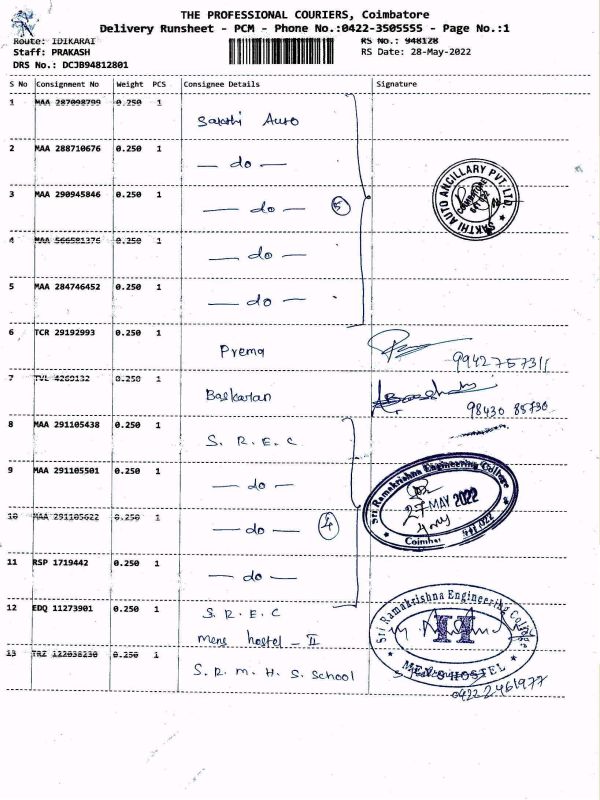 THE PROFESSIONAL COURIERS, Coimbatore
Delivery Runsheet - PCM - Phone No.:0422-3505555 - Page No.:1
Route: IDIKARAI RS No.: 948128
Staff: PRAKASH RS Date: 28-May-2022
DRS No.: DCJB94812801
S No Consignment No Weight PCS Consignee Details Signature
1 MAA 287098799 0.250 1 Sakthi Auto
2 MAA 288710676 0.250 1 — do —
3 MAA 290945846 0.250 1 — do — 5
4 MAA 566581376 0.250 1 — do —
5 MAA 284746452 0.250 1 — do —
SAKTHI AUTO ANCILLARY PVT. LTD.
6 TCR 29192993 0.250 1 Prema 9942757311
7 TVL 4269132 0.250 1 Baskaran 98430 85730
8 MAA 291105438 0.250 1 S. R. E. C
9 MAA 291105501 0.250 1 — do —
10 MAA 291105622 0.250 1 — do — 4
11 RSP 1719442 0.250 1 — do —
Sri Ramakrishna Engineering College
27 MAY 2022
12 EDQ 11273901 0.250 1 S. R. E. C
mens hostel - II
Sri Ramakrishna Engineering College
II
MEN'S HOSTEL
13 TRZ 122038230 0.250 1 S. R. M. H. S. School
0422 2461977